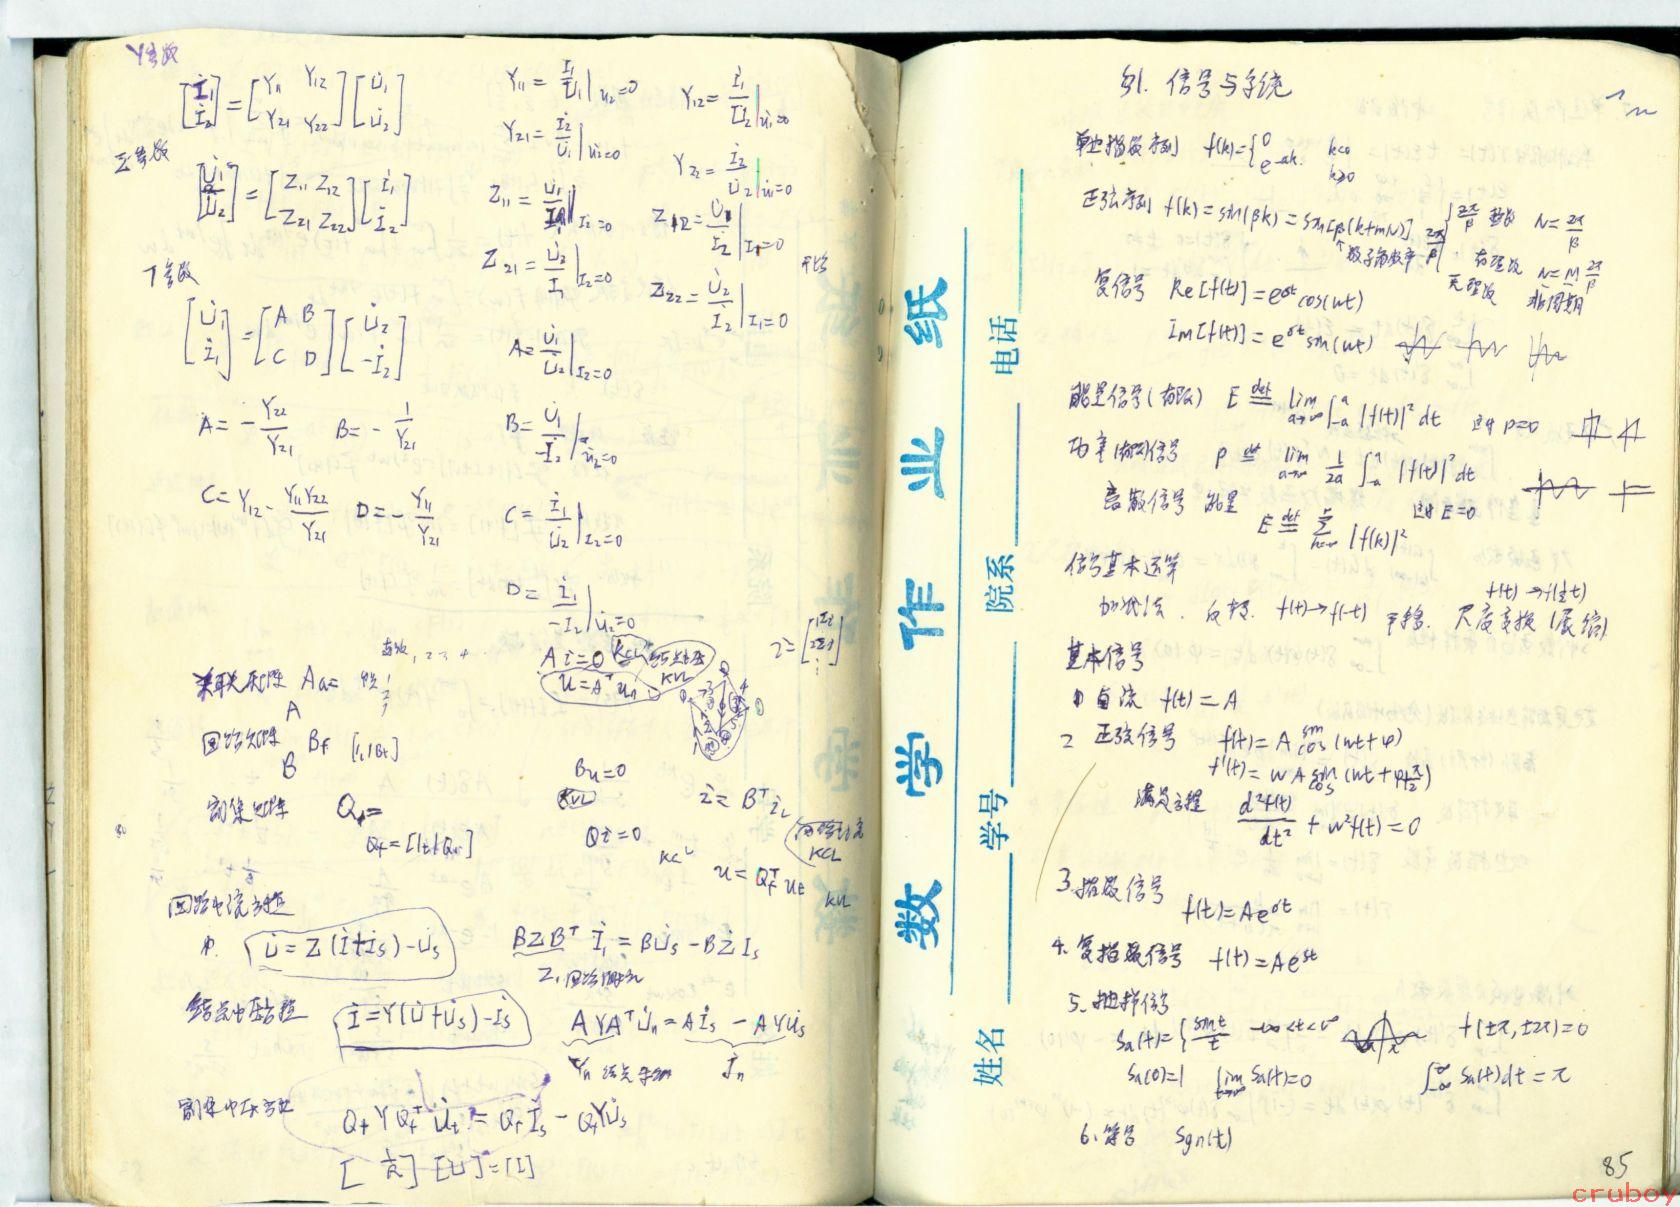 Y参数
[İ1 İ2] = [Y11 Y12 Y21 Y22] [U̇1 U̇2]
Y11 = İ1/U̇1 | U̇2=0
Y12 = İ1/U̇2 | U̇1=0
Y21 = İ2/U̇1 | U̇2=0
Y22 = İ2/U̇2 | U̇1=0
Z参数
[U̇1 U̇2] = [Z11 Z12 Z21 Z22] [İ1 İ2]
Z11 = U̇1/İ1 | I2=0
Z12 = U̇1/İ2 | I1=0
Z21 = U̇2/I1 | I2=0
Z22 = U̇2/I2 | I1=0
开路
T参数
[U̇1 İ1] = [A B C D] [U̇2 -İ2]
A = U̇1/U̇2 | I2=0
A = - Y22/Y21 B = - 1/Y21
B = U̇1/-I2 | U̇2=0
C = Y12 - Y11Y22/Y21 D = - Y11/Y21
C = İ1/U̇2 | I2=0
D = İ1/-I2 | U̇2=0
关联矩阵 Aa=
A
Ai=0 KCL
u=Aᵀun KVL
回路矩阵 Bf [1,1Bt]
B
Bu=0
KVL
i = Bᵀ iL
KCL
割集矩阵 Qf=
Qf=[1t|Ql]
Qi=0
KCL
u = Qfᵀ ut
KVL
回路电流方程
U̇ = Z(İ+İs)-U̇s
BZBᵀ İ1 = BU̇s - BZİs
Z1 回路阻抗
结点电压方程
İ=Y(U̇+U̇s)-İs
AYAᵀU̇n = Aİs - AYU̇s
Yn 结点导纳 J̇n
割集电压方程
Qf Y Qfᵀ U̇t = Qf İs - Qf Y U̇s
[1/R] [U] = [I]
数学作业纸
姓名 学号 院系 电话
§1. 信号与系统
单边指数序列 f(k)={0 k<0
e^-αk k≥0
正弦序列 f(k)=sin(βk)=sin[β(k+mN)] 2π/β 整数 N=2π/β
数字角频率 2π/β 有理数 N=M 2π/β
无理数 非周期
复信号 Re[f(t)]=e^σt cos(wt)
Im[f(t)]=e^σt sin(wt)
能量信号(有限) E def= lim a→∞ ∫-a a |f(t)|² dt 此时 P=0
功率(有限)信号 P def= lim a→∞ 1/2a ∫-a a |f(t)|² dt
离散信号 能量 E def= Σ |f(k)|² 此时 E=0
信号基本运算
加减法. 反转. f(t)→f(-t) 平移. 尺度变换(展缩)
基本信号
1 直流 f(t)=A
2 正弦信号 f(t)=A sin cos (wt+φ)
f'(t)=wA sin cos (wt+φ+π/2)
满足方程 d²f(t)/dt² + w²f(t)=0
3. 指数信号
f(t)=Ae^σt
4. 复指数信号 f(t)=Ae^st
5. 抽样信号
Sa(t)={ sint/t -∞<t<∞ f(±π,±2π)=0
Sa(0)=1 lim t→∞ Sa(t)=0 ∫-∞ ∞ Sa(t)dt=π
6. 符号 Sgn(t)
85
cruboy